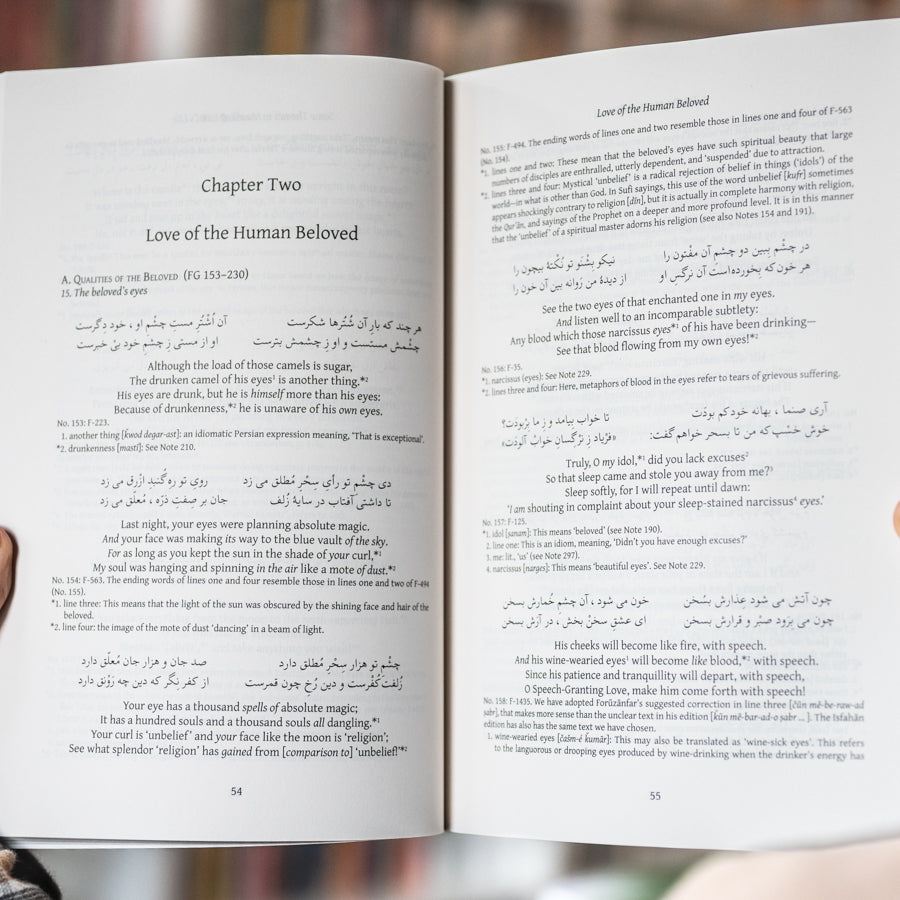 Chapter Two
Love of the Human Beloved
A. Qualities of the Beloved (FG 153–230)
15. The beloved's eyes
هر چند که بارِ آن شُتُرها شکرست آن اُشْتُرِ مستِ چشْمِ او ، خود دِگَرست
چشْمش مستست و او زِ چشمش بترست او از مستی زِ چشمِ خود بی خبرست
Although the load of those camels is sugar,
The drunken camel of his eyes¹ is another thing.*²
His eyes are drunk, but he is himself more than his eyes:
Because of drunkenness,*² he is unaware of his own eyes.
No. 153: F-223.
1. another thing [kẖwod degar-ast]: an idiomatic Persian expression meaning, 'That is exceptional'.
*2. drunkenness [mastī]: See Note 210.
دی چشْمِ تو رأیِ سِحْرِ مطلق می زد رویِ تو رهِ گُنبدِ ازْرق می زد
تا داشتی آفتاب در سایهٔ زُلف جان بر صِفتِ ذرّه ، مُعلّق می زد
Last night, your eyes were planning absolute magic.
And your face was making its way to the blue vault of the sky.
For as long as you kept the sun in the shade of your curl,*¹
My soul was hanging and spinning in the air like a mote of dust.*²
No. 154: F-563. The ending words of lines one and four resemble those in lines one and two of F-494
(No. 155).
*1. line three: This means that the light of the sun was obscured by the shining face and hair of the
beloved.
*2. line four: the image of the mote of dust 'dancing' in a beam of light.
چشْمِ تو هزار سِحْرِ مُطلق دارد صد جان و هزار جان مُعلّق دارد
زُلفت کُفْرست و دین رُخِ چون قمرست از کفر نِگر که دین چه رَوْنق دارد
Your eye has a thousand spells of absolute magic;
It has a hundred souls and a thousand souls all dangling.*¹
Your curl is 'unbelief' and your face like the moon is 'religion';
See what splendor 'religion' has gained from [comparison to] 'unbelief!'*²
54
Love of the Human Beloved
No. 155: F-494. The ending words of lines one and two resemble those in lines one and four of F-563
(No. 154).
*1. lines one and two: These mean that the beloved's eyes have such spiritual beauty that large
numbers of disciples are enthralled, utterly dependent, and 'suspended' due to attraction.
*2. lines three and four: Mystical 'unbelief' is a radical rejection of belief in things ('idols') of the
world—in what is other than God. In Sufi sayings, this use of the word unbelief [kufr] sometimes
appears shockingly contrary to religion [dīn], but it is actually in complete harmony with religion,
the Qur'ān, and sayings of the Prophet on a deeper and more profound level. It is in this manner
that the 'unbelief' of a spiritual master adorns his religion (see also Notes 154 and 191).
در چشْمِ ببین دو چشمِ آن مفْتون را نیکو بشْنَو تو نُکْتهٔ بیچون را
هر خون که بخورده‌است آن نرگسِ او از دیدهٔ من رَوانه بین آن خون را
See the two eyes of that enchanted one in my eyes.
And listen well to an incomparable subtlety:
Any blood which those narcissus eyes*¹ of his have been drinking—
See that blood flowing from my own eyes!*²
No. 156: F-35.
*1. narcissus (eyes): See Note 229.
*2. lines three and four: Here, metaphors of blood in the eyes refer to tears of grievous suffering.
آری صنما ، بهانه خود کم بودَت تا خواب بیامد و ز ما بِرْبودَت؟
خوش خسْپ که من تا بسحر خواهم گفت: «فرْیاد زِ نرْگسانِ خواب آلودَت»
Truly, O my idol,*¹ did you lack excuses²
So that sleep came and stole you away from me?³
Sleep softly, for I will repeat until dawn:
'I am shouting in complaint about your sleep-stained narcissus⁴ eyes.'
No. 157: F-125.
*1. idol [ṣanam]: This means 'beloved' (see Note 190).
2. line one: This is an idiom, meaning, 'Didn't you have enough excuses?'
3. me: lit., 'us' (see Note 297).
4. narcissus [narges]: This means 'beautiful eyes'. See Note 229.
چون آتش می شود عِذارش بسُخن خون می شود ، آن چشمِ خُمارش بسخن
چون می برَود صبْر و قرارش بسخن ای عشقِ سخنْ بخش ، در آرَش بسخن
His cheeks will become like fire, with speech.
And his wine-wearied eyes¹ will become like blood,*² with speech.
Since his patience and tranquillity will depart, with speech,
O Speech-Granting Love, make him come forth with speech!
No. 158: F-1435. We have adopted Forūzānfar's suggested correction in line three [čūn mē-be-raw-ad
ṣabr], that makes more sense than the unclear text in his edition [kūn mē-bar-ad-o ṣabr ... ]. The Isfahān
edition has also has the same text we have chosen.
1. wine-wearied eyes [čašm-é kumār]: This may also be translated as 'wine-sick eyes'. This refers
to the languorous or drooping eyes produced by wine-drinking when the drinker's energy has
55